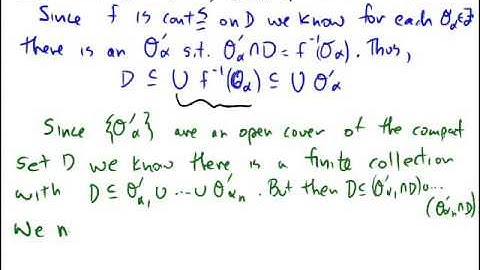 Since f is conts on D we know for each O_α ∈ F
there is an O'_α s.t. O'_α ∩ D = f⁻¹(O_α). Thus,
D ⊆ ∪ f⁻¹(O_α) ⊆ ∪ O'_α
Since {O'_α} are an open cover of the compact
set D we know there is a finite collection
with D ⊆ O'_α₁ ∪ ... ∪ O'_αₙ. But then D ⊆ (O'_α₁ ∩ D) ∪ ...
(O'_αₙ ∩ D)
We n